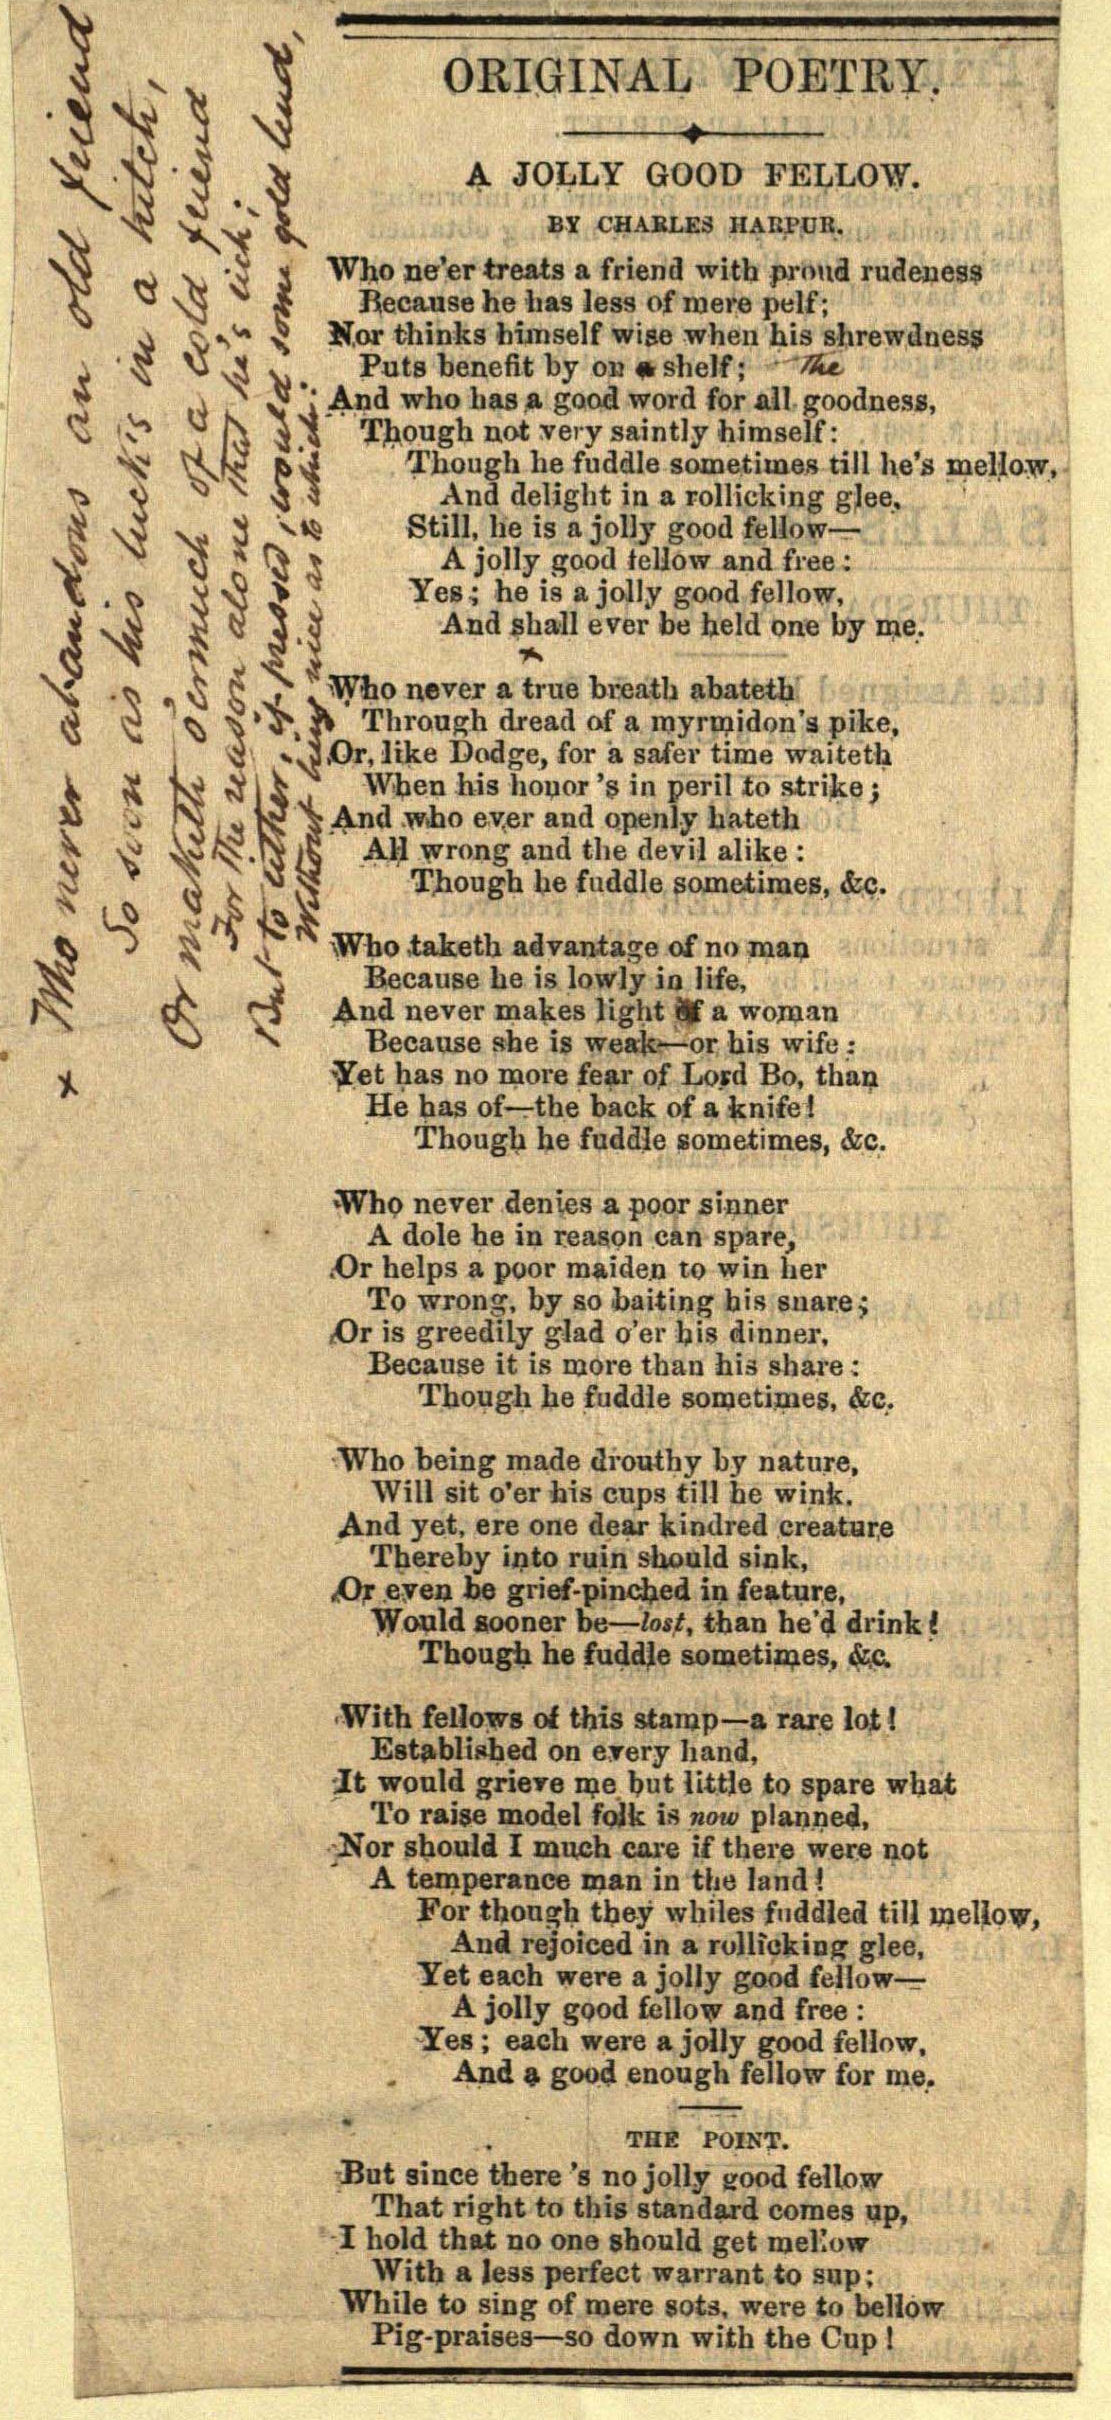 ORIGINAL POETRY.
A JOLLY GOOD FELLOW.
BY CHARLES HARPUR.
Who ne'er treats a friend with proud rudeness
Because he has less of mere pelf;
Nor thinks himself wise when his shrewdness
Puts benefit by on a shelf; The
And who has a good word for all goodness,
Though not very saintly himself:
Though he fuddle sometimes till he's mellow,
And delight in a rollicking glee,
Still, he is a jolly good fellow—
A jolly good fellow and free:
Yes; he is a jolly good fellow,
And shall ever be held one by me.
×
Who never a true breath abateth
Through dread of a myrmidon's pike,
Or, like Dodge, for a safer time waiteth
When his honor 's in peril to strike;
And who ever and openly hateth
All wrong and the devil alike:
Though he fuddle sometimes, &c.
Who taketh advantage of no man
Because he is lowly in life,
And never makes light of a woman
Because she is weak—or his wife:
Yet has no more fear of Lord Bo, than
He has of—the back of a knife!
Though he fuddle sometimes, &c.
Who never denies a poor sinner
A dole he in reason can spare,
Or helps a poor maiden to win her
To wrong, by so baiting his snare;
Or is greedily glad o'er his dinner,
Because it is more than his share:
Though he fuddle sometimes, &c.
Who being made drouthy by nature,
Will sit o'er his cups till he wink,
And yet, ere one dear kindred creature
Thereby into ruin should sink,
Or even be grief-pinched in feature,
Would sooner be—lost, than he'd drink!
Though he fuddle sometimes, &c.
With fellows of this stamp—a rare lot!
Established on every hand,
It would grieve me but little to spare what
To raise model folk is now planned,
Nor should I much care if there were not
A temperance man in the land!
For though they whiles fuddled till mellow,
And rejoiced in a rollicking glee,
Yet each were a jolly good fellow—
A jolly good fellow and free:
Yes; each were a jolly good fellow,
And a good enough fellow for me.
THE POINT.
But since there 's no jolly good fellow
That right to this standard comes up,
I hold that no one should get mellow
With a less perfect warrant to sup;
While to sing of mere sots, were to bellow
Pig-praises—so down with the Cup!
× Who never abandons an old friend
So soon as his luck's in a hitch,
Or maketh o'ermuch of a cold friend
For the reason alone that he's rich;
But to either, if pressed, would some gold lend,
Without being nice as to which: